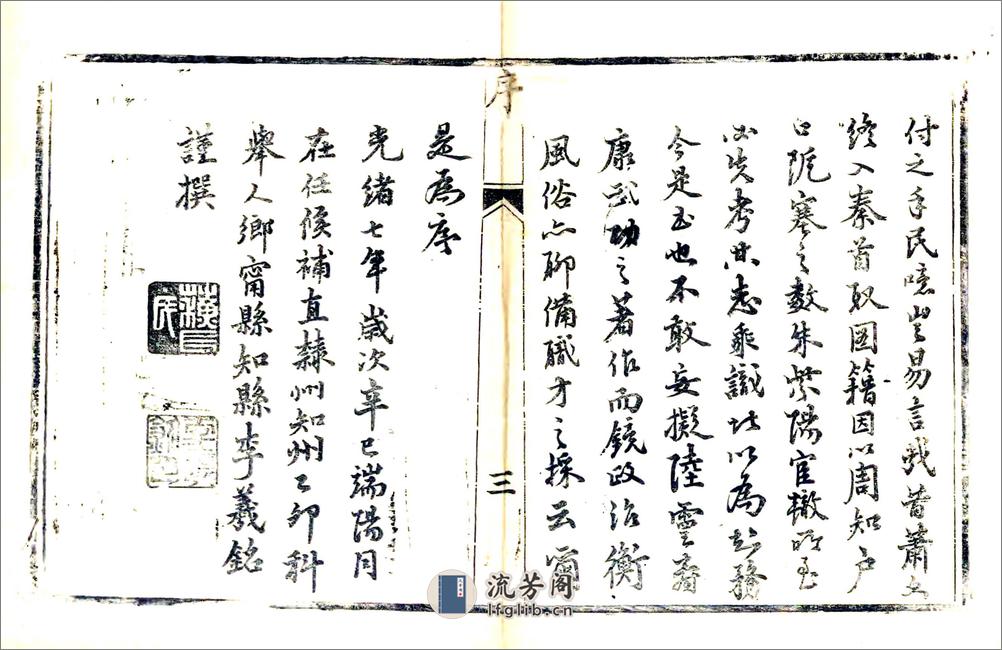 付之手民噫豈易言哉昔蕭文
終入秦首収圖籍因以周知户
口阨塞之數朱紫陽官轍所至
必先考其志乘識此以為起務
今是書也不敢妄擬陸靈壽
康武功之著作而鏡政治衡
風俗亦聊備職方之採云爾
序
三
是為序
光緒七年歲次辛巳端陽月
在任候補直隸州知州乙卯科
舉人鄉甯縣知縣李羲銘
謹撰
流芳阁
lfglib.cn